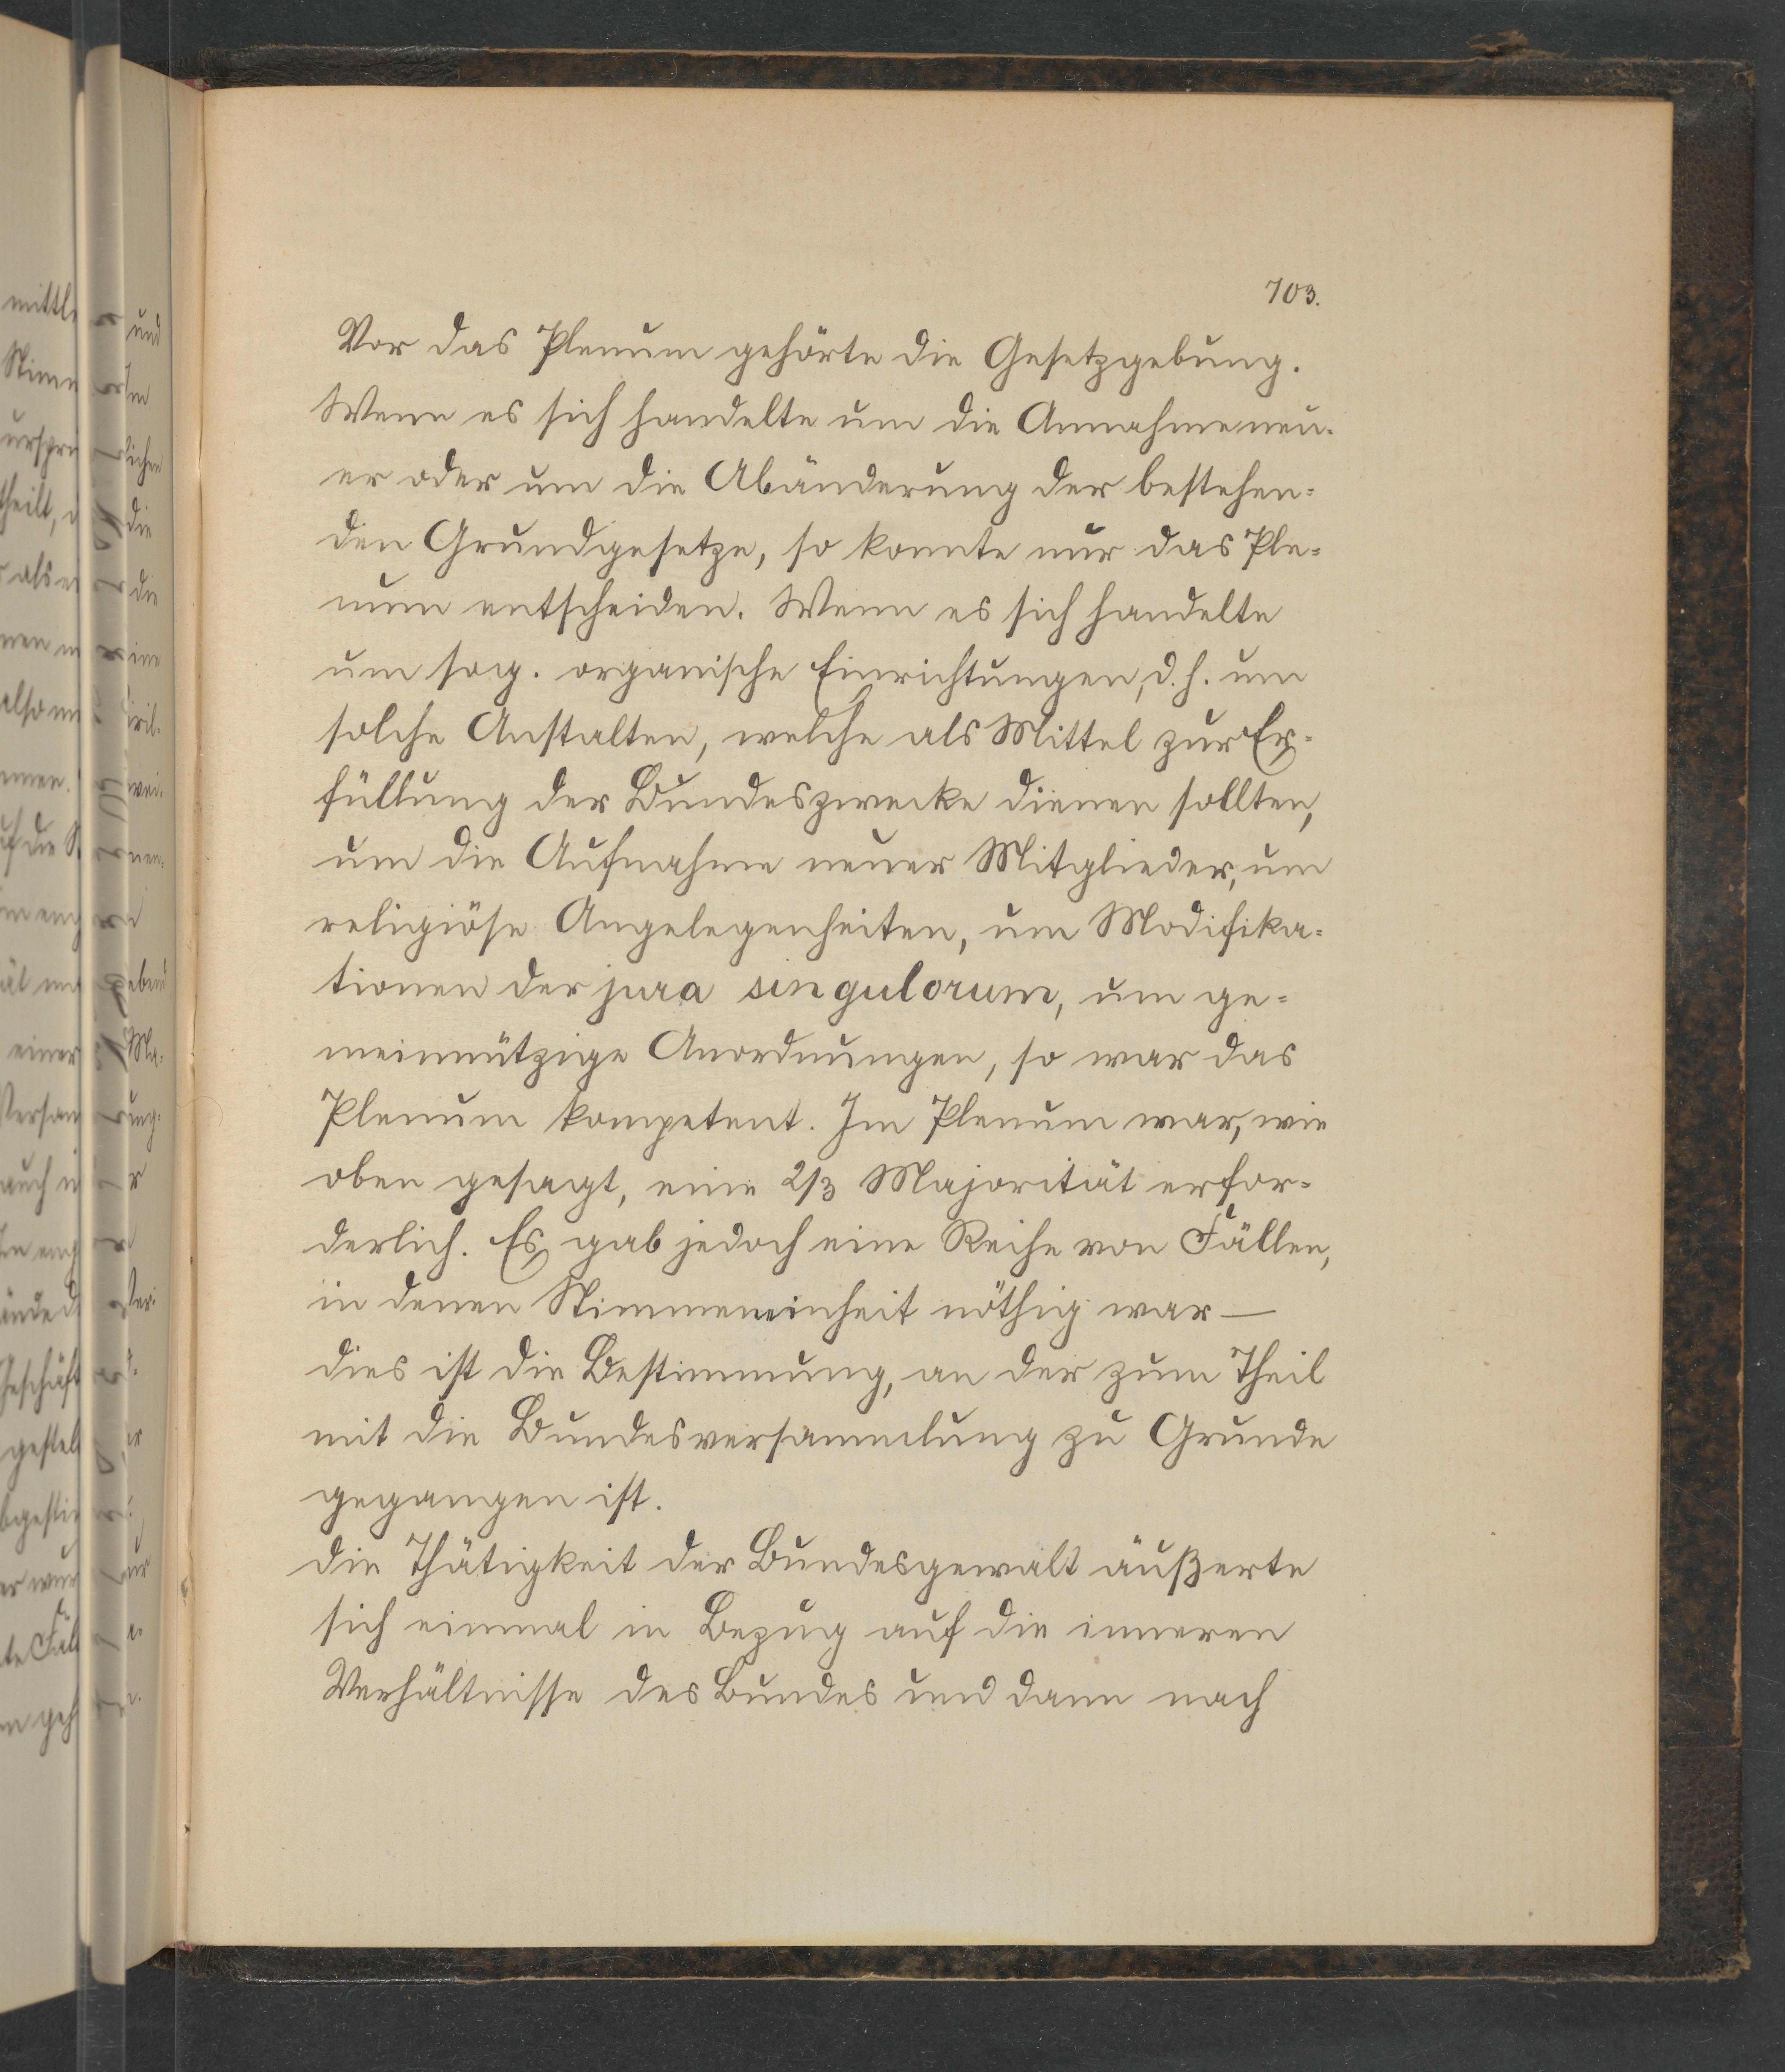 703.
Vor das Plenum gehörte die Gesetzgebung.
Wenn es sich handelte um die Annahme neu-
er oder um die Abänderung der bestehen-
den Grundgesetze, so konnte nur das Ple-
num entscheiden. Wenn es sich handelte
um sog. organische Einrichtungen, d. h. um
solche Anstalten, welche als Mittel zur Er-
füllung der Bundeszwecke dienen sollten,
um die Aufnahme neuer Mitglieder, um
religiöse Angelegenheiten, um Modifika-
tionen der jura singulorum, um ge-
meinnützige Anordnungen, so war das
Plenum kompetent. Im Plenum war, wie
oben gesagt, eine 2/3 Majorität erfor-
derlich. Es gab jedoch eine Reihe von Fällen,
in denen Stimmeneinheit nöthig war —
dies ist die Bestimmung, an der zum Theil
mit die Bundesversammlung zu Grunde
gegangen ist.
Die Thätigkeit der Bundesgewalt äußerte
sich einmal in Bezug auf die inneren
Verhältnisse des Bundes und dann nach